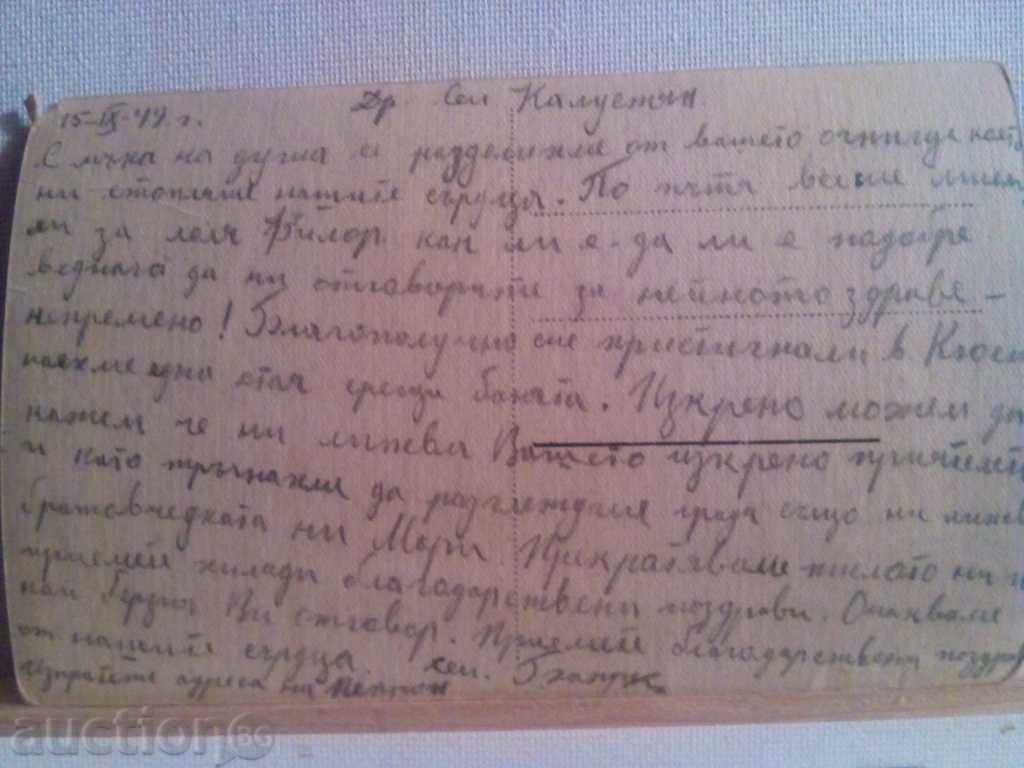 15-IX-49 г.
Др. Сем. Калустян
С мъка на душа се разделихме от вашето огнище което
ни стопляше нашите сърца. По пътя веше
ли за леля Вилор. как ли е - да ли е подобре
веднага да ни отговорите за нейното здраве -
непремено! Благополучно сме пристигнали в Кюст
наехме една стая срещу банята. Изкрено можем да
кажем че ни липсва Вашето изкрено
и като тръгнахме да разглеждаме града също ни липсва
братовчедката ни Мари. Прекратяваме писмото ни и
приемей хиляди благодарствени поздрави. Очакваме
най бързия Ви отговор. Приемей благодарствени поздрави
от нашите сърца. сем.
изпратете адреса на
auction BG